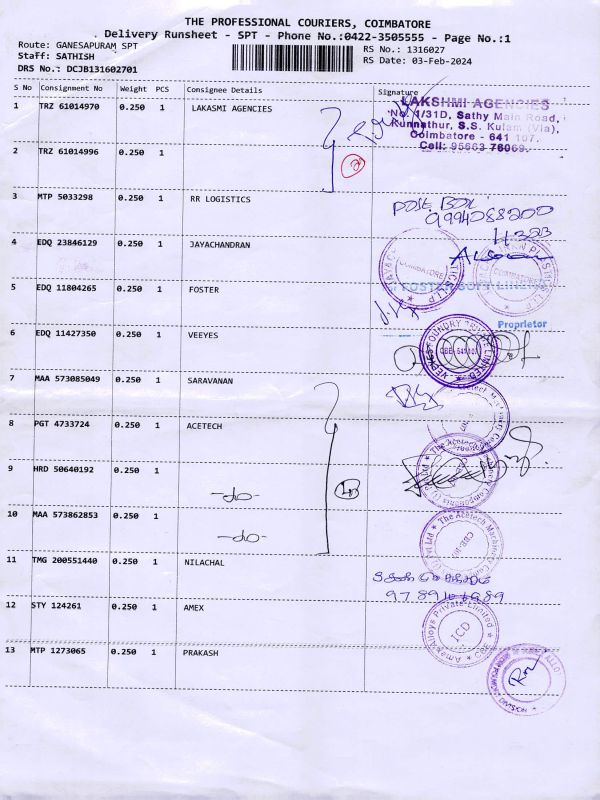 THE PROFESSIONAL COURIERS, COIMBATORE
Delivery Runsheet - SPT - Phone No.:0422-3505555 - Page No.:1
Route: GANESAPURAM SPT
RS No.: 1316027
Staff: SATHISH
RS Date: 03-Feb-2024
DRS No.: DCJB131602701
S No Consignment No Weight PCS Consignee Details Signature
1 TRZ 61014970 0.250 1 LAKASMI AGENCIES
LAKSHMI AGENCIES
No. 1/31D, Sathy Main Road,
Kunnathur, S.S. Kulam (Via),
Coimbatore - 641 107.
Cell: 95663 76069.
2 TRZ 61014996 0.250 1
3 MTP 5033298 0.250 1 RR LOGISTICS
POST BOX
9994088200
11323
4 EDQ 23846129 0.250 1 JAYACHANDRAN
COIMBATORE
COIMBATORE
5 EDQ 11804265 0.250 1 FOSTER
FOSTER SOFT
Proprietor
6 EDQ 11427350 0.250 1 VEEYES
7 MAA 573085049 0.250 1 SARAVANAN
8 PGT 4733724 0.250 1 ACETECH
9 HRD 50640192 0.250 1
-do-
10 MAA 573862853 0.250 1
-do-
The Acetech Machinery
11 TMG 200551440 0.250 1 NILACHAL
12 STY 124261 0.250 1 AMEX
Amex Alloys Private Limited
ICD
CBE
13 MTP 1273065 0.250 1 PRAKASH